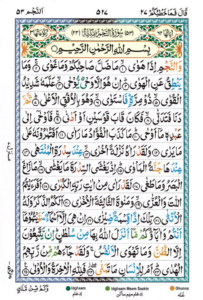 قَالَ فَمَا خَطْبُكُمْ ٢٧ ٥٢٧ اَلنَّجْم ٥٣
بِسْمِ اللّٰهِ الرَّحْمٰنِ الرَّحِيْمِ
وَالنَّجْمِ اِذَا هَوٰى مَا ضَلَّ صَاحِبُكُمْ وَمَا غَوٰى وَمَا
يَنْطِقُ عَنِ الْهَوٰى اِنْ هُوَ اِلَّا وَحْيٌ يُّوْحٰى عَلَّمَهٗ شَدِيْدُ
الْقُوٰى ذُوْ مِرَّةٍ فَاسْتَوٰى وَهُوَ بِالْاُفُقِ الْاَعْلٰى
ثُمَّ دَنَا فَتَدَلّٰى فَكَانَ قَابَ قَوْسَيْنِ اَوْ اَدْنٰى فَاَوْحٰٓى اِلٰى
عَبْدِهٖ مَآ اَوْحٰى مَا كَذَبَ الْفُؤَادُ مَا رَاٰى اَفَتُمٰرُوْنَهٗ
عَلٰى مَا يَرٰى وَلَقَدْ رَاٰهُ نَزْلَةً اُخْرٰى عِنْدَ سِدْرَةِ الْمُنْتَهٰى
عِنْدَهَا جَنَّةُ الْمَاْوٰى اِذْ يَغْشَى السِّدْرَةَ مَا يَغْشٰى مَا زَاغَ
الْبَصَرُ وَمَا طَغٰى لَقَدْ رَاٰى مِنْ اٰيٰتِ رَبِّهِ الْكُبْرٰى اَفَرَءَيْتُمُ
اللّٰتَ وَالْعُزّٰى وَمَنٰوةَ الثَّالِثَةَ الْاُخْرٰى اَلَكُمُ الذَّكَرُ وَلَهُ
الْاُنْثٰى تِلْكَ اِذًا قِسْمَةٌ ضِيْزٰى اِنْ هِيَ اِلَّآ اَسْمَآءٌ سَمَّيْتُمُوْهَآ
اَنْتُمْ وَاٰبَآؤُكُمْ مَّآ اَنْزَلَ اللّٰهُ بِهَا مِنْ سُلْطٰنٍ اِنْ يَّتَّبِعُوْنَ
اِلَّا الظَّنَّ وَمَا تَهْوَى الْاَنْفُسُ وَلَقَدْ جَآءَهُمْ مِّنْ رَّبِّهِمُ
الْهُدٰى اَمْ لِلْاِنْسَانِ مَا تَمَنّٰى فَلِلّٰهِ الْاٰخِرَةُ وَالْاُوْلٰى
Idghaam Idghaam Meem Saakin Ghunna